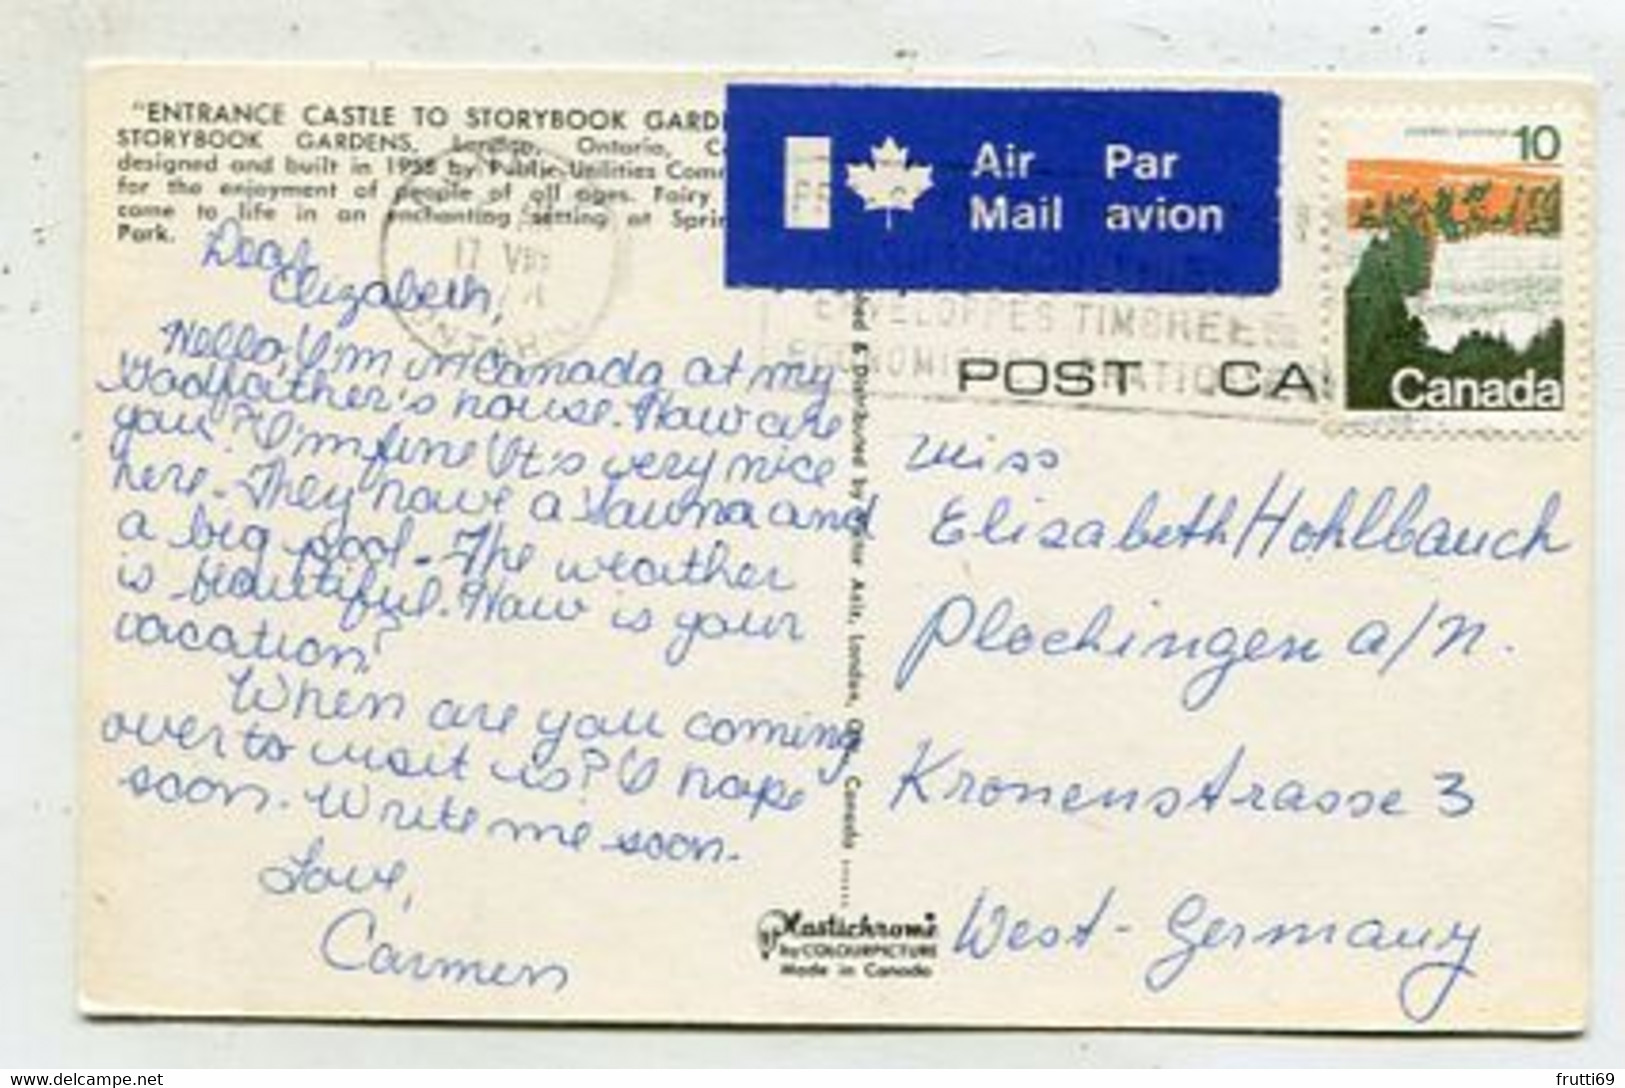 "ENTRANCE CASTLE TO STORYBOOK GARD
STORYBOOK GARDENS, London, Ontario, C
designed and built in 1958 by Public Utilities Com
for the enjoyment of people of all ages. Fairy
come to life in an enchanting setting at Spri
Park.
Dear
Elizabeth,
Hello, I'm in Canada at my
Godfather's house. How are
you? I'm fine It's very nice
here. They have a sauna and
a big pool. The weather
is beautiful. How is your
vacation?
When are you coming
over to visit us? I hope
soon. Write me soon.
Love,
Carmen
17 VIII
ONTARIO
& Distributed by Asir, London, Canada ......
Plastichrome
by COLOURPICTURE
Made in Canada
Air Par
Mail avion
ENVELOPPES TIMBREES
POST CA
10
Canada
Miss
Elisabeth Hohlbauch
Plochingen a/N.
Kronenstrasse 3
West-Germany
frutti69